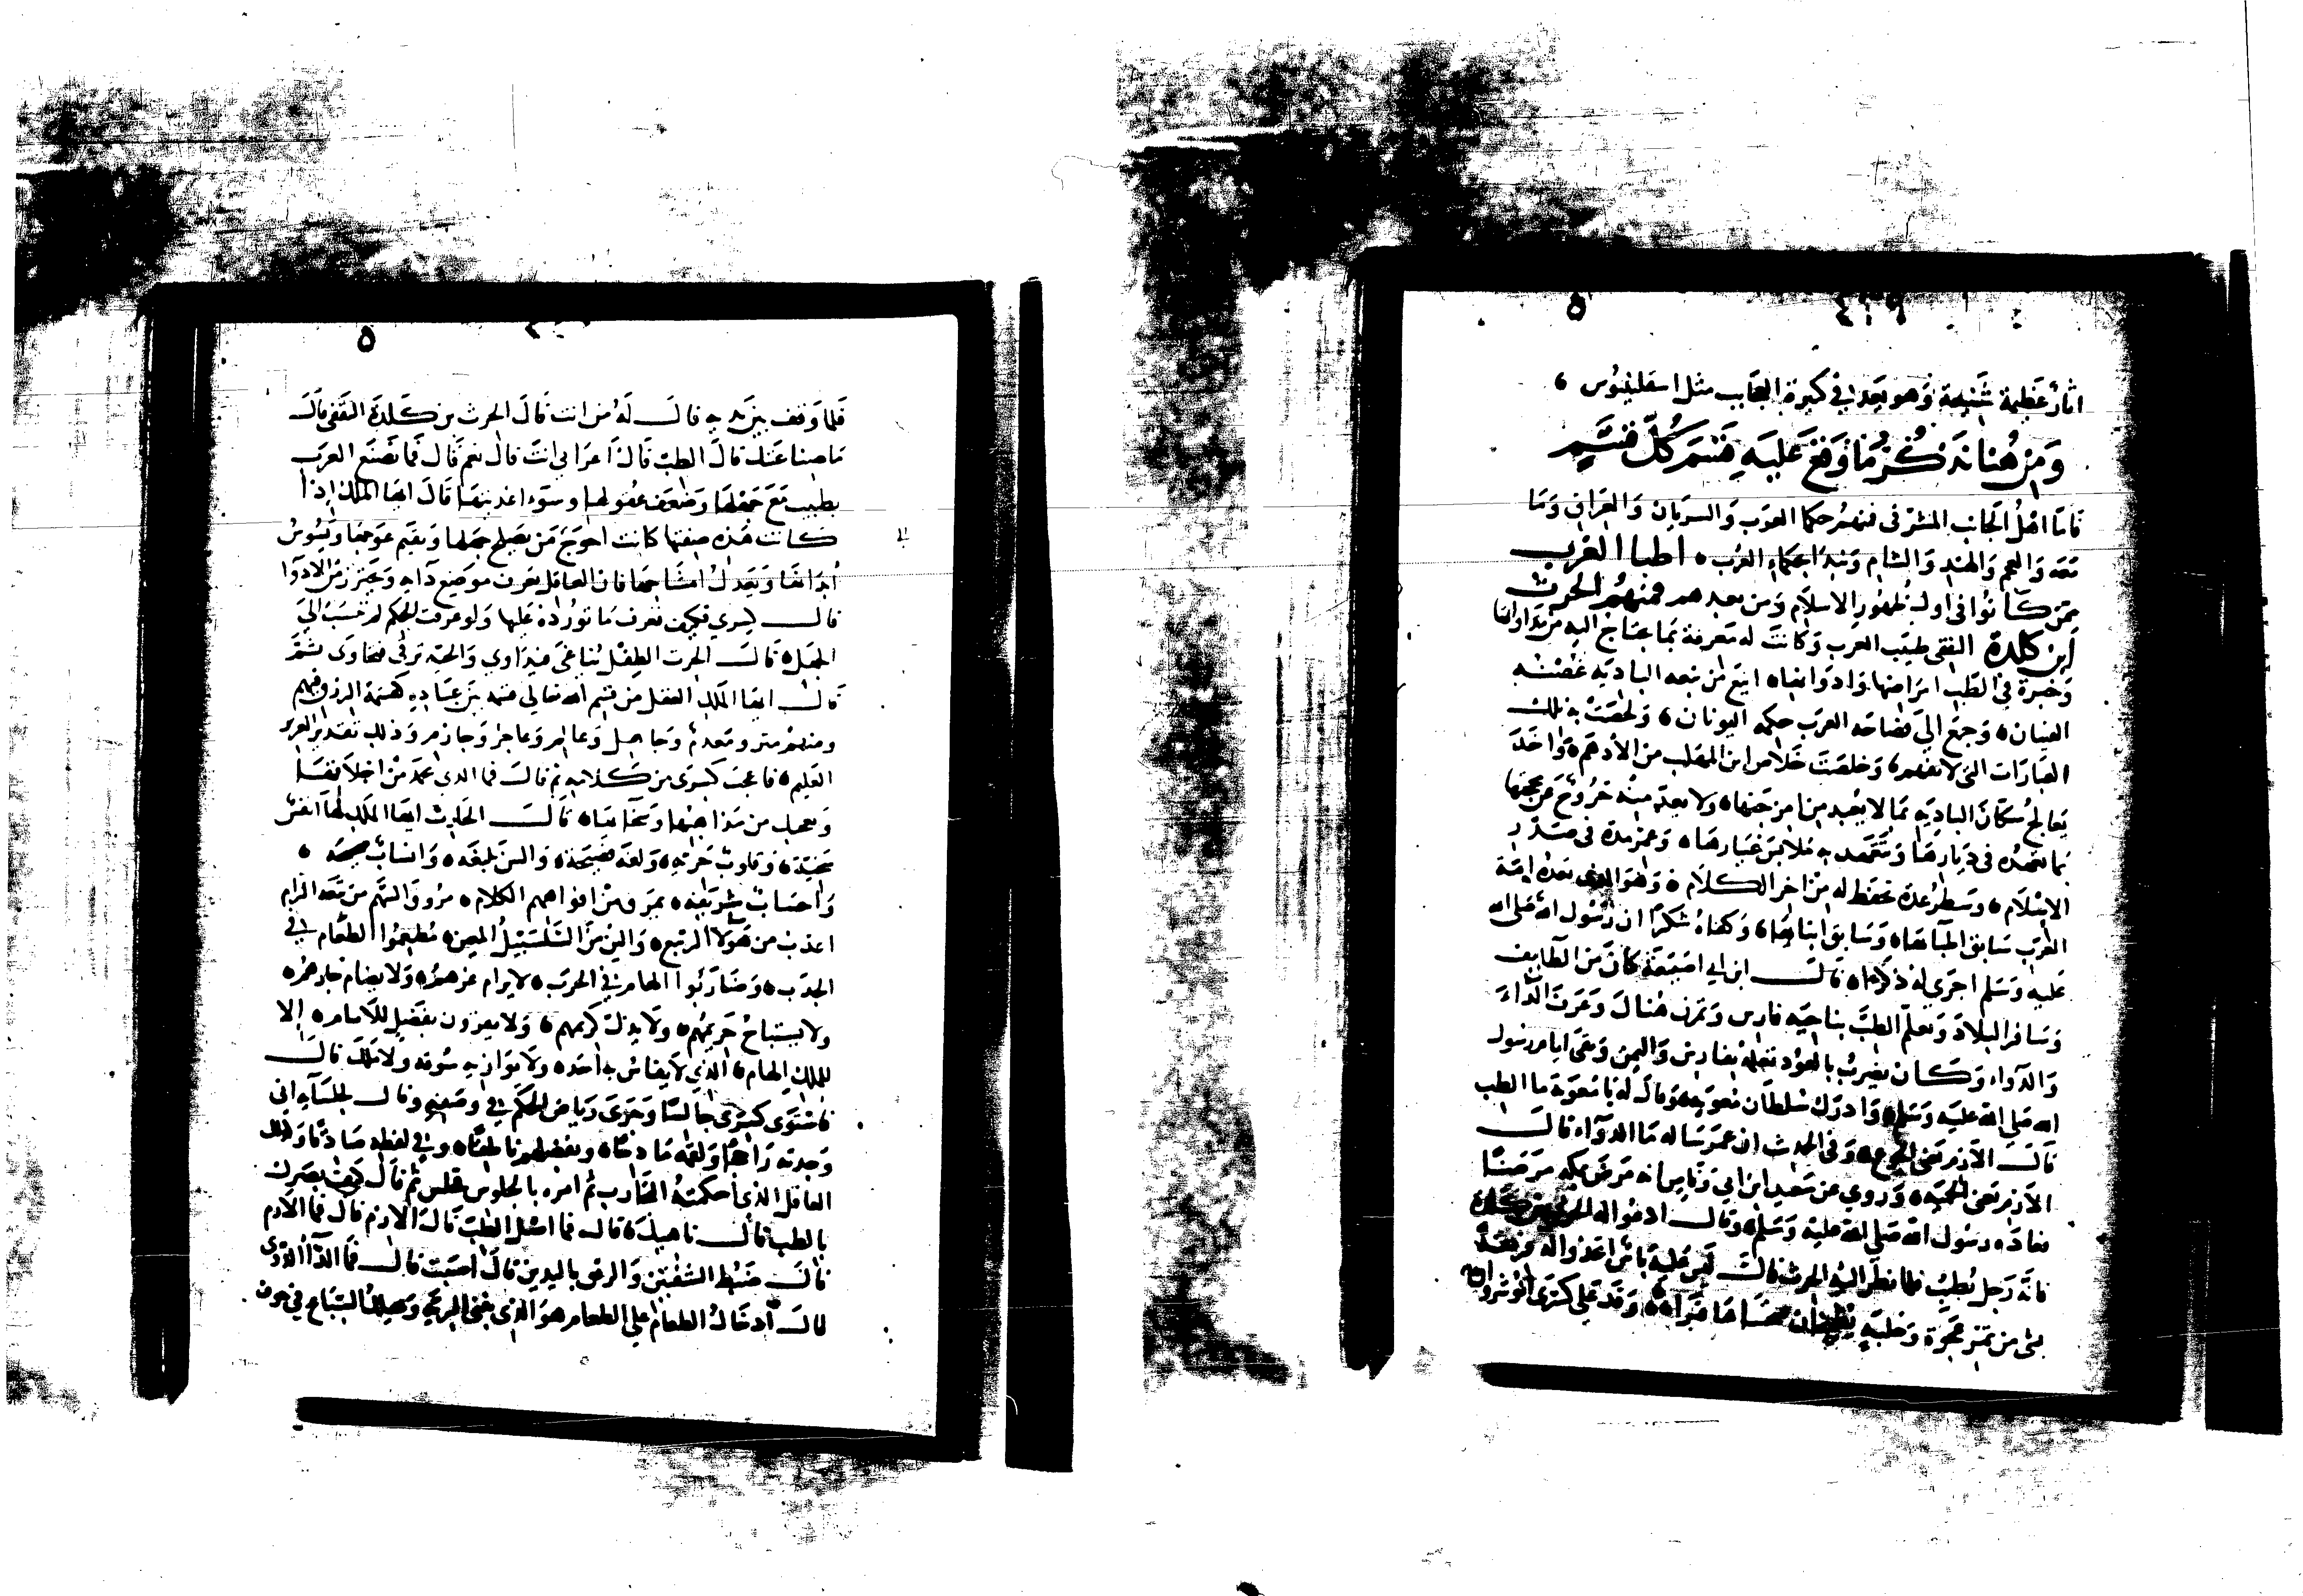 اثار عظيمة شنيعة وهو يعد في كبرة العجايب مثل اسقلبيوس ،
ومن هنا نذكر ما وقع عليه قسم كل قسم
فاما اهل الجانب المشرقى فمنهم حكما العرب والسريان والعراق وما
معه والعجم والهند والشام ونبدا بحكماء العرب ، اطبا العرب
ممن كانوا فى اول ظهور الاسلام ومن بعدهم فمنهم الحرث
ابن كلدة الثقفى طبيب العرب وكانت له معرفة بما يحتاج اليه من مداواتها
وخبرة في الطب امراضها وادوائها ه من نبعه الباديه غصنه
الفينان ه وجمع الى فصاحه العرب حكمه اليونان ، ولحقت به تلك
العبارات التى لا تفهم ، وخلصت خلاص ابن المهلب من الادهم ، واخذ
يعالج سكان الباديه بما لا يبعد من امزجتها ه ولا يعد منه خروج عن محجتها
بما تعهده في ديارها وتتعهد به ملابس غبارها ه وعمر مدة فى صدر
الاسلام ه وسطر عدة تحفظ له من اخر الكلام ه وهو الذى تعده امة
العرب سابق المباها ه وسابق ابنايها ، وكفاه شكرا ان رسول الله صلى الله
عليه وسلم اجرى له ذكرا ه قال ابن ابي اصيبعة كان من الطايف
وسافر البلاد وتعلم الطب بناحيه فارس وتمرن هنال وعرف الداء
والدواء وكان يضرب بالعود تعلمه بفارس واليمن وبقى ايام رسول
الله صلى الله عليه وسلم ه وادرك سلطان معوية ه وقال له يا معوية ما الطب
قال الازم يعنى الجوع ه وفى الحديث ان عمر ساله ما الدواء قال
الازم يعنى الحميه ه وروي عن سعد ابن ابي وقاص انه مرض بمكه مرضا
فعاده رسول الله صلى الله عليه وسلم ه وقال ادعوا له الحرث بن كلدة
فانه رجل يطبب فلما نظر اليه الحرث قال ليس عليه باس اتخذوا له فريقة
بشى من تمر عجوة وحلبه يطبخان فتحساها فبرا ه ه وقد على كسرى انوشروان
فلما وقف بين يديه قال له من انت قال الحرث بن كلدة الثقفى قال
ما صناعتك قال الطب قال اعرابي انت قال نعم قال فما تصنع العرب
بطبيب مع جهلها وضعف عقولها وسوء اغذيتها قال ايها الملك اذا
كانت هذه صفتها كانت احوج من يصلح جهلها ويقيم عوجها ويسوس
ابدانها ويعدل امشاجها فان العاقل يعرف موضع دايه ويحترز من الادوا
قال كسري فكيف تعرف ما تورده عليها ولو عرفت الحكم لم تنسب الى
الجهل ه قال الحرث الطفل يناغى فيداوي والحيه ترقى فتحاوى ثم
قال ايها الملك العقل من قسم الله تعالى قسمه بين عباده كقسمة الرزق فيهم
ومنهم مثر ومعدم وجاهل وعالم وعاجز وحازم وذلك تقدير العزيز
العليم ه فاعجب كسرى من كلامه ثم قال فما الذى تحمد من اخلاقها
ويعجبك من مذاهبها وسجاياها ه قال الحارث ايها الملك لها انفس
سخية ه وقلوب جرئيه ه ولغه فصيحة ه والسن بليغه ه وانساب صحيحه ،
واحساب شريفه ه يمرق من افواههم الكلام ه مروق السهم من نبعه الرام
اعذب من هوا الربيع ه والين من السلسبيل المعين ه مطعموا الطعام في
الجدب ه وضاربوا الهام في الحرب ه لا يرام عزهم ه ولا يضام جارهم ه
ولا يستباح حريمهم ه ولا يذل كريمهم ، ولا يقرون بفضل للانام ه الا
للملك الهمام ه الذي لا يقاس به احد ه ولا يوازيه سوقه ولا ملك قال
فاستوى كسرى جالسا وجرى رياض الحكم في وصفه وقال لجلسايه انى
وجدته راجحا ولقومه مادحا ه وبفضلهم ناطقا ه وفي لفظه صادقا وكذلك
العاقل الذى احكمته التجارب ثم امره بالجلوس فجلس ثم قال كيف بصرك
بالطب قال ناهيك ه قال فما اصل الطب قال الازم قال فما الازم
قال ضبط الشفتين والرفق باليدين قال اصبت قال فما الداء الدوى
قال ادخال الطعام على الطعام هو الذى يفنى البريه ويهلك السباع في جوف